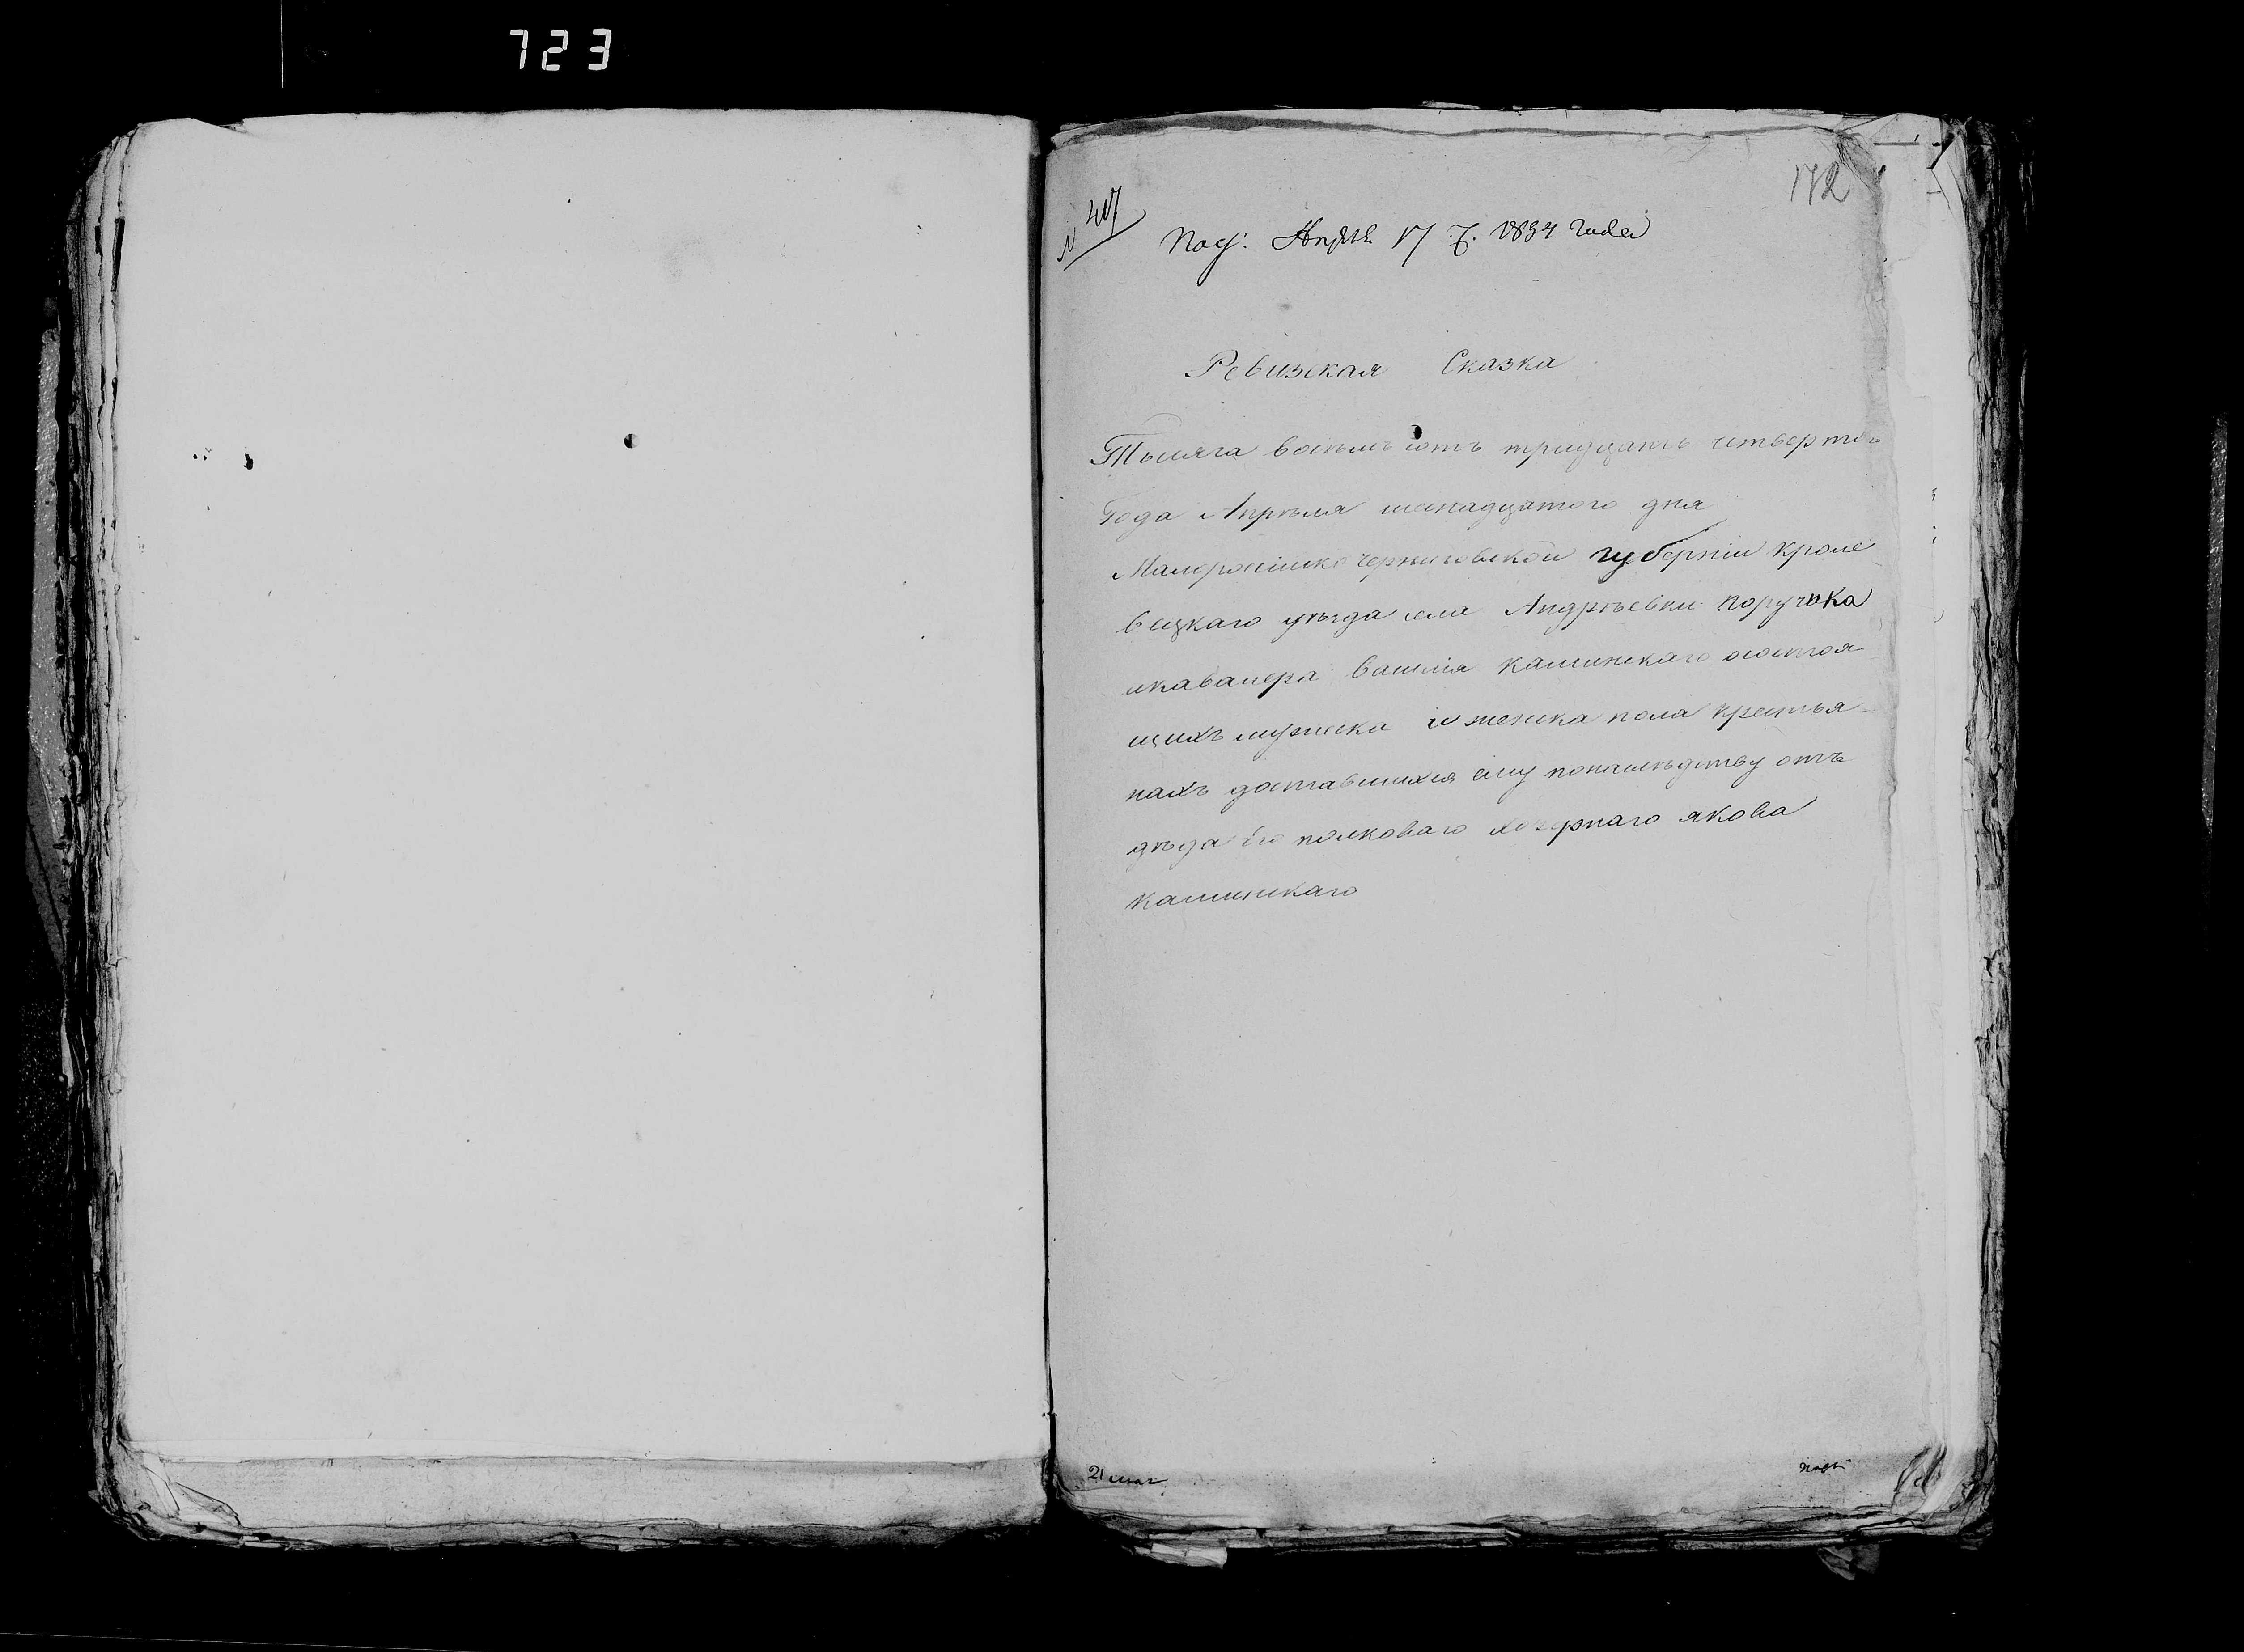 723
172
N 417
Под: Апреля 17 д. 1834 года
Ревизская Сказка
Тысяча восемь сотъ тридцать четверто
Года Апреля шенадцатого дня
Малоросійско Черниговской губерніи Кроле
вецкаго уѣзда села Андрѣевки поручика
икавалера Василія Кашинскаго осостоя
щихъ мужеска и женска пола крестья
нахъ доставшихся ему понаслѣдству отъ
дѣда Его полковаго якова
Кашинскаго
21